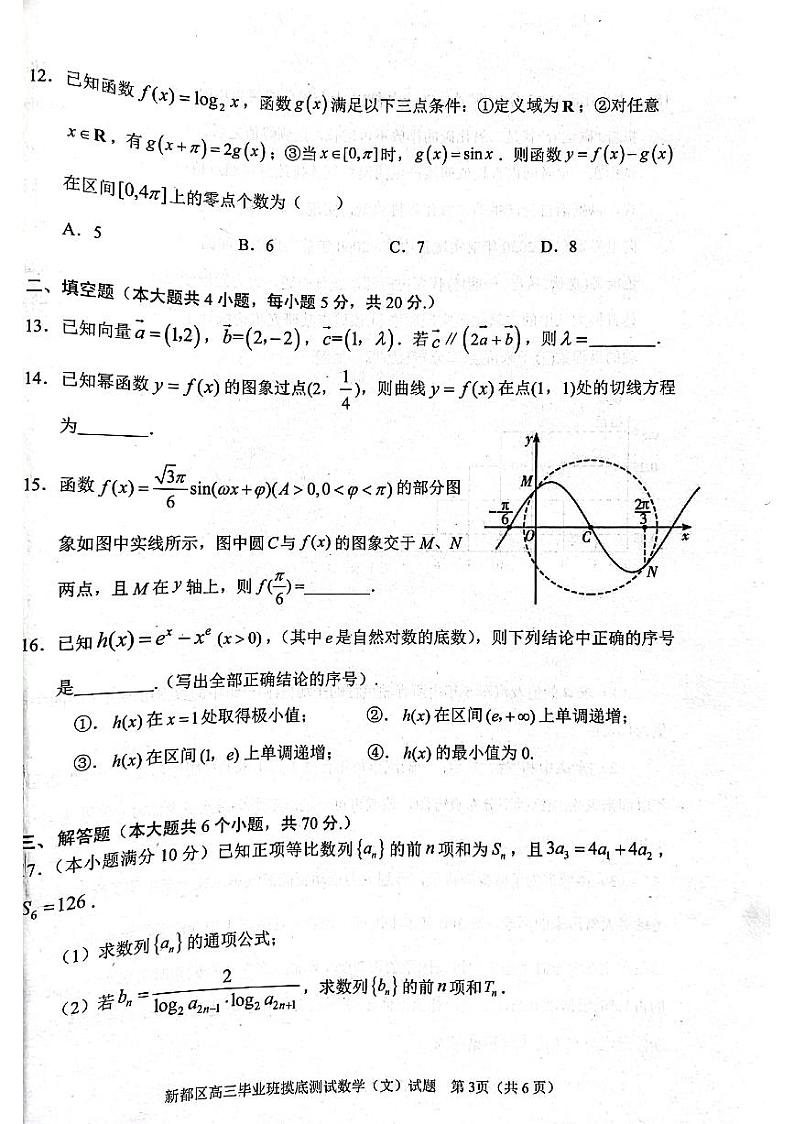 12. 已知函数 f(x)=log₂ x，函数 g(x) 满足以下三点条件：①定义域为 R；②对任意
x∈R，有 g(x+π)=2g(x)；③当 x∈[0,π] 时，g(x)=sin x．则函数 y=f(x)-g(x)
在区间[0,4π]上的零点个数为（  ）
A. 5 B. 6 C. 7 D. 8
二、填空题（本大题共 4 小题，每小题 5 分，共 20 分.）
13. 已知向量 a⃗=(1,2)，b⃗=(2,-2)，c⃗=(1, λ)．若 c⃗∥(2a⃗+b⃗)，则 λ=______．
14. 已知幂函数 y=f(x) 的图象过点(2, 1/4)，则曲线 y=f(x) 在点(1，1)处的切线方程
为______．
15. 函数 f(x)=(√3π/6)sin(ωx+φ)(A>0,0<φ<π) 的部分图
象如图中实线所示，图中圆 C 与 f(x) 的图象交于 M、N
两点，且 M 在 y 轴上，则 f(π/6)=______．
y
M
-π/6 O C 2π/3 x
N
16. 已知 h(x)=eˣ-xᵉ (x>0)，（其中 e 是自然对数的底数），则下列结论中正确的序号
是______．（写出全部正确结论的序号）．
①. h(x) 在 x=1 处取得极小值； ②. h(x) 在区间 (e,+∞) 上单调递增；
③. h(x) 在区间 (1，e) 上单调递增； ④. h(x) 的最小值为 0.
三、解答题（本大题共 6 个小题，共 70 分.）
7.（本小题满分 10 分）已知正项等比数列 {aₙ} 的前 n 项和为 Sₙ，且 3a₃=4a₁+4a₂，
S₆=126．
（1）求数列 {aₙ} 的通项公式；
（2）若 bₙ=2/(log₂ a₂ₙ₋₁·log₂ a₂ₙ₊₁)，求数列 {bₙ} 的前 n 项和 Tₙ．
新都区高三毕业班摸底测试数学（文）试题 第 3页（共 6 页）